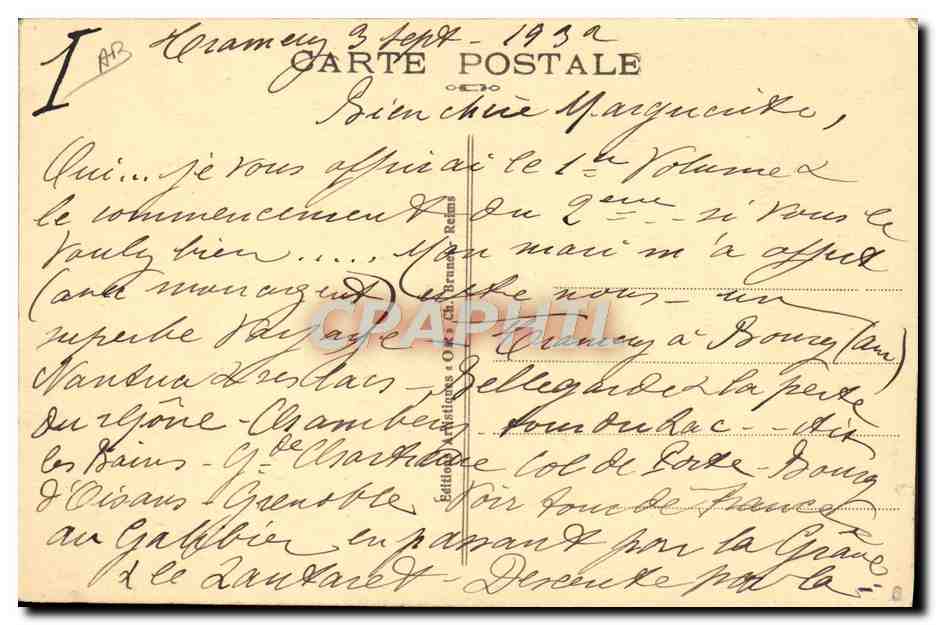 I AB
Tramery 3 Sept - 1932
CARTE POSTALE
Bien chère Marguerite,
Oui... je vous offrirai le 1er Volume &
le commencement du 2ème - si vous le
voulez bien ..... Mon mari m'a offert
(avec mon argent) entre nous - un
superbe Voyage - Tramery à Bourg (Ain)
Nantua & ses lacs - Bellegarde & la perte
du Rhône - Chambéry tour du Lac - Aix
les Bains - Gde Chartreuse Col de Porte - Bourg
d'Oisans - Grenoble Voir tour de France
au Galibier en passant par la Grave
& le Lautaret - Descente par la -
Éditions Artistiques "Or" Ch. Brunel, Reims
CRAPHTI